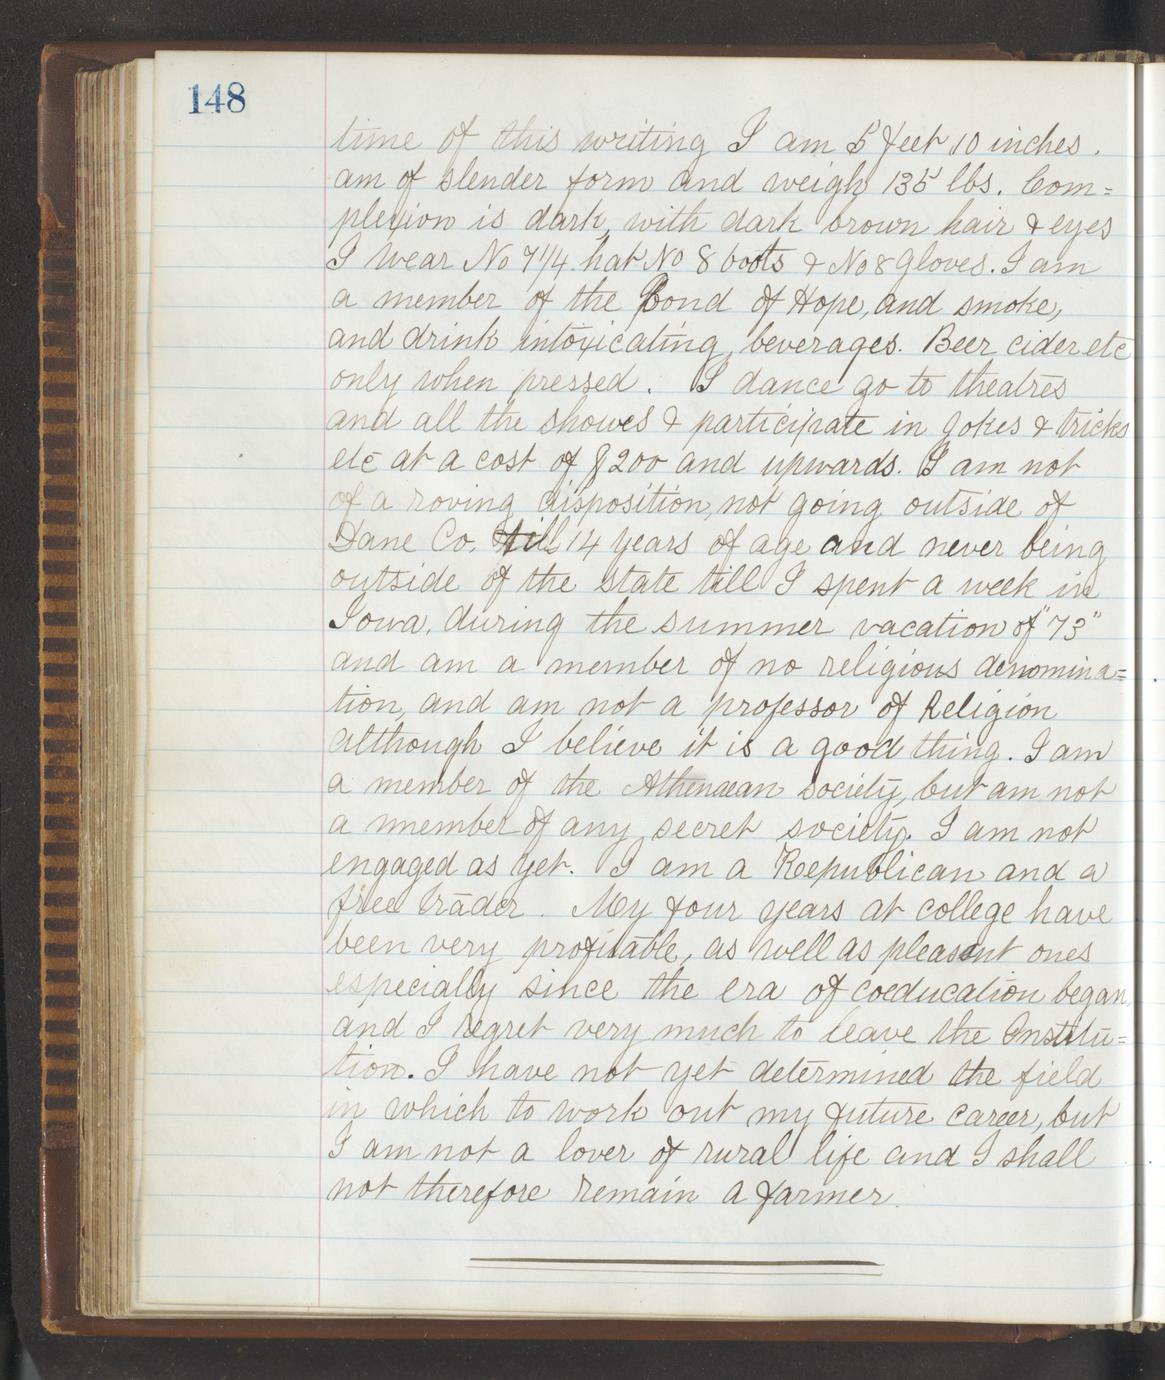 148
time of this writing I am 5 feet 10 inches.
am of slender form and weigh 135 lbs. Com=
plexion is dark, with dark brown hair & eyes
I wear No 7 1/4 hat No 8 boots & No 8 gloves. I am
a member of the Bond of Hope, and smoke,
and drink intoxicating beverages. Beer cider etc
only when pressed. I dance go to theatres
and all the showes & participate in Jokes & tricks
etc at a cost of $200 and upwards. I am not
of a roving disposition, not going outside of
Dane Co. till 14 years of age and never being
outside of the state till I spent a week in
Iowa, during the summer vacation of "73"
and am a member of no religious denomina=
tion, and am not a professor of Religion
although I believe it is a good thing. I am
a member of the Athenaean society, but am not
a mnember of any secret society. I am not
engaged as yet. I am a Reepublican and a
free trader. My four years at college have
been very profitable, as well as pleasant ones
especially since the era of coeducation began,
and I regret very much to leave the Institu=
tion. I have not yet determined the field
in which to work out my future career, but
I am not a lover of rural life and I shall
not therefore remain a farmer.